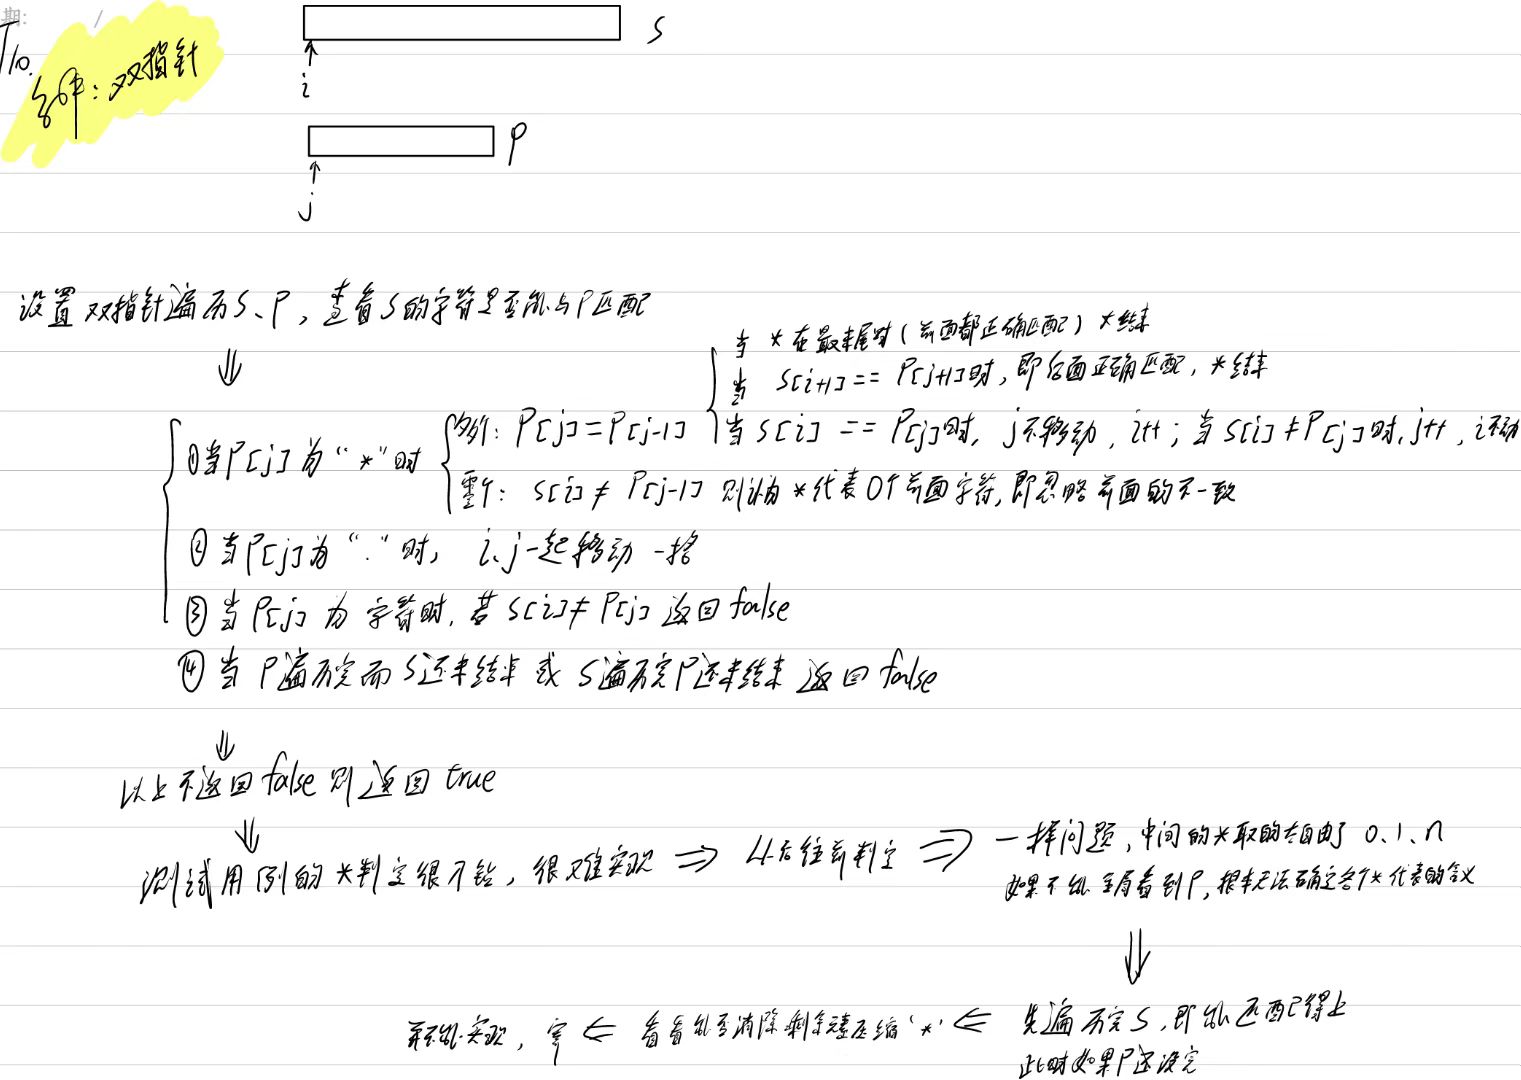 期: /
T10.
s
i
P
j
:双指针
设置双指针遍历S、P,查看S的字符是否能与P匹配
⇓
当 *在最末尾时(前面都正确匹配)*结束
当 S[i+1]==P[j+1]时,即后面正确匹配,*结束
①当P[j]为“*”时
多个:P[j]=P[j-1]
当S[i]==P[j]时,j不移动,i++;当S[i]≠P[j]时,j++,i不动
零个:S[i]≠P[j-1]则认为*代表0个前面字符,即忽略前面的不一致
②当P[j]为“.”时,i、j一起移动一格
③当P[j]为字符时,若S[i]≠P[j]返回false
④当P遍历完而S还未结束或S遍历完P还未结束返回false
⇓
以上不返回false则返回true
⇓
测试用例的*判定很不好,很难实现 ⇒ 从后往前判定 ⇒ 一样问题,中间的*取的太自由了0.1.n
如果不能全局看到P,根本无法确定各个*代表的含义
⇓
先遍历完S,即能匹配得上
此时如果P还没完
⇐ 看看能否消除剩余 压缩'*'
⇐ 实现,寄